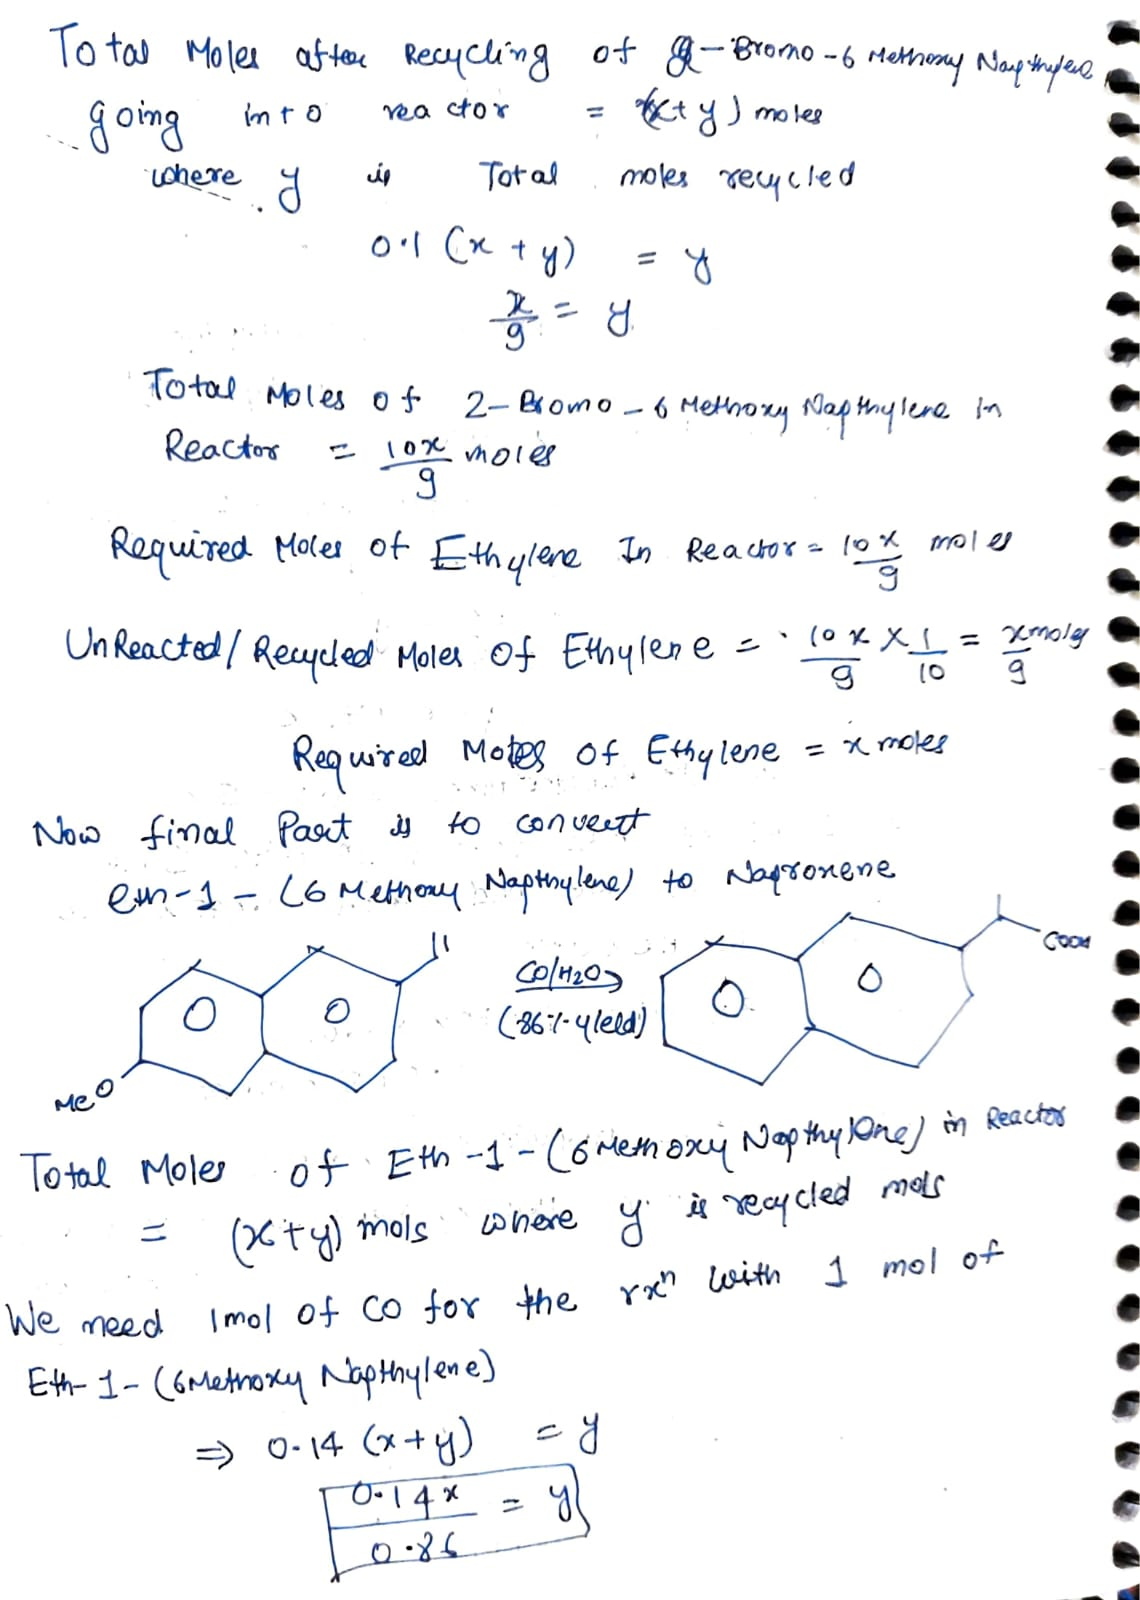 Total Moles after Recycling of 2-Bromo-6 Methoxy Napthylene
going into reactor = (x+y) moles
where y is Total moles recycled
0.1 (x + y) = y
x/9 = y
Total Moles of 2-Bromo-6 Methoxy Napthylene In
Reactor = 10x/9 moles
Required Moles of Ethylene In Reactor = 10x/9 moles
UnReacted/Recycled Moles Of Ethylene = 10x/9 × 1/10 = x/9 moles
Required Moles Of Ethylene = x moles
Now final Part is to convert
eth-1-(6 Methoxy Napthylene) to Napronene
CO/H2O
(86% yield)
MeO
COOH
Total Moles of Eth-1-(6 Methoxy Napthylene) in Reactor
= (x+y) mols where y is recycled mols
We need 1mol of CO for the rxⁿ with 1 mol of
Eth-1-(6Methoxy Napthylene)
⇒ 0.14 (x+y) = y
0.14x/0.86 = y